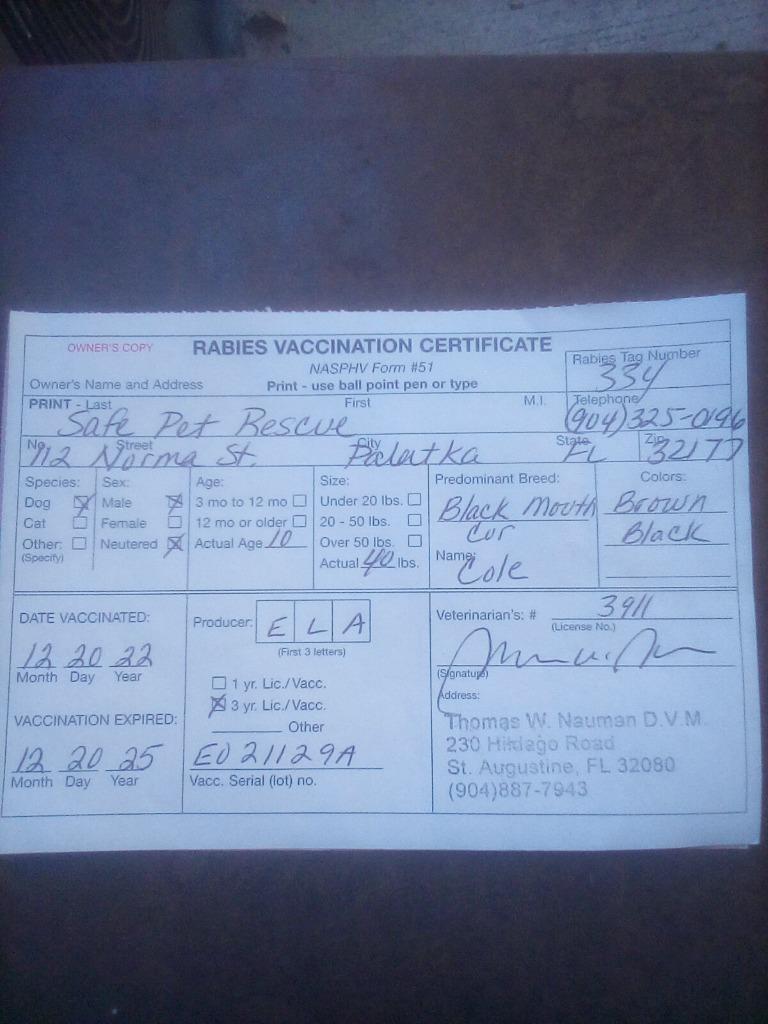 OWNER'S COPY
RABIES VACCINATION CERTIFICATE
NASPHV Form #51
Rabies Tag Number
334
Owner's Name and Address
Print - use ball point pen or type
PRINT - Last First M.I.
Telephone
Safe Pet Rescue
(904)325-0196
No. Street City State Zip
712 Norma St. Palatka FL 32177
Species: Sex: Age: Size: Predominant Breed: Colors:
Dog Male 3 mo to 12 mo Under 20 lbs. Black Mouth Brown
Cat Female 12 mo or older 20 - 50 lbs. Cur Black
Other: Neutered Actual Age 10 Over 50 lbs. Name:
(Specify) Actual 40 lbs. Cole
DATE VACCINATED:
12 20 22
Month Day Year
VACCINATION EXPIRED:
12 20 25
Month Day Year
Producer: E L A
(First 3 letters)
1 yr. Lic./Vacc.
3 yr. Lic./Vacc.
Other
EO21129A
Vacc. Serial (lot) no.
Veterinarian's: # 3911
(License No.)
(Signature)
Address:
Thomas W. Nauman D.V.M.
230 Hildago Road
St. Augustine, FL 32080
(904)887-7943